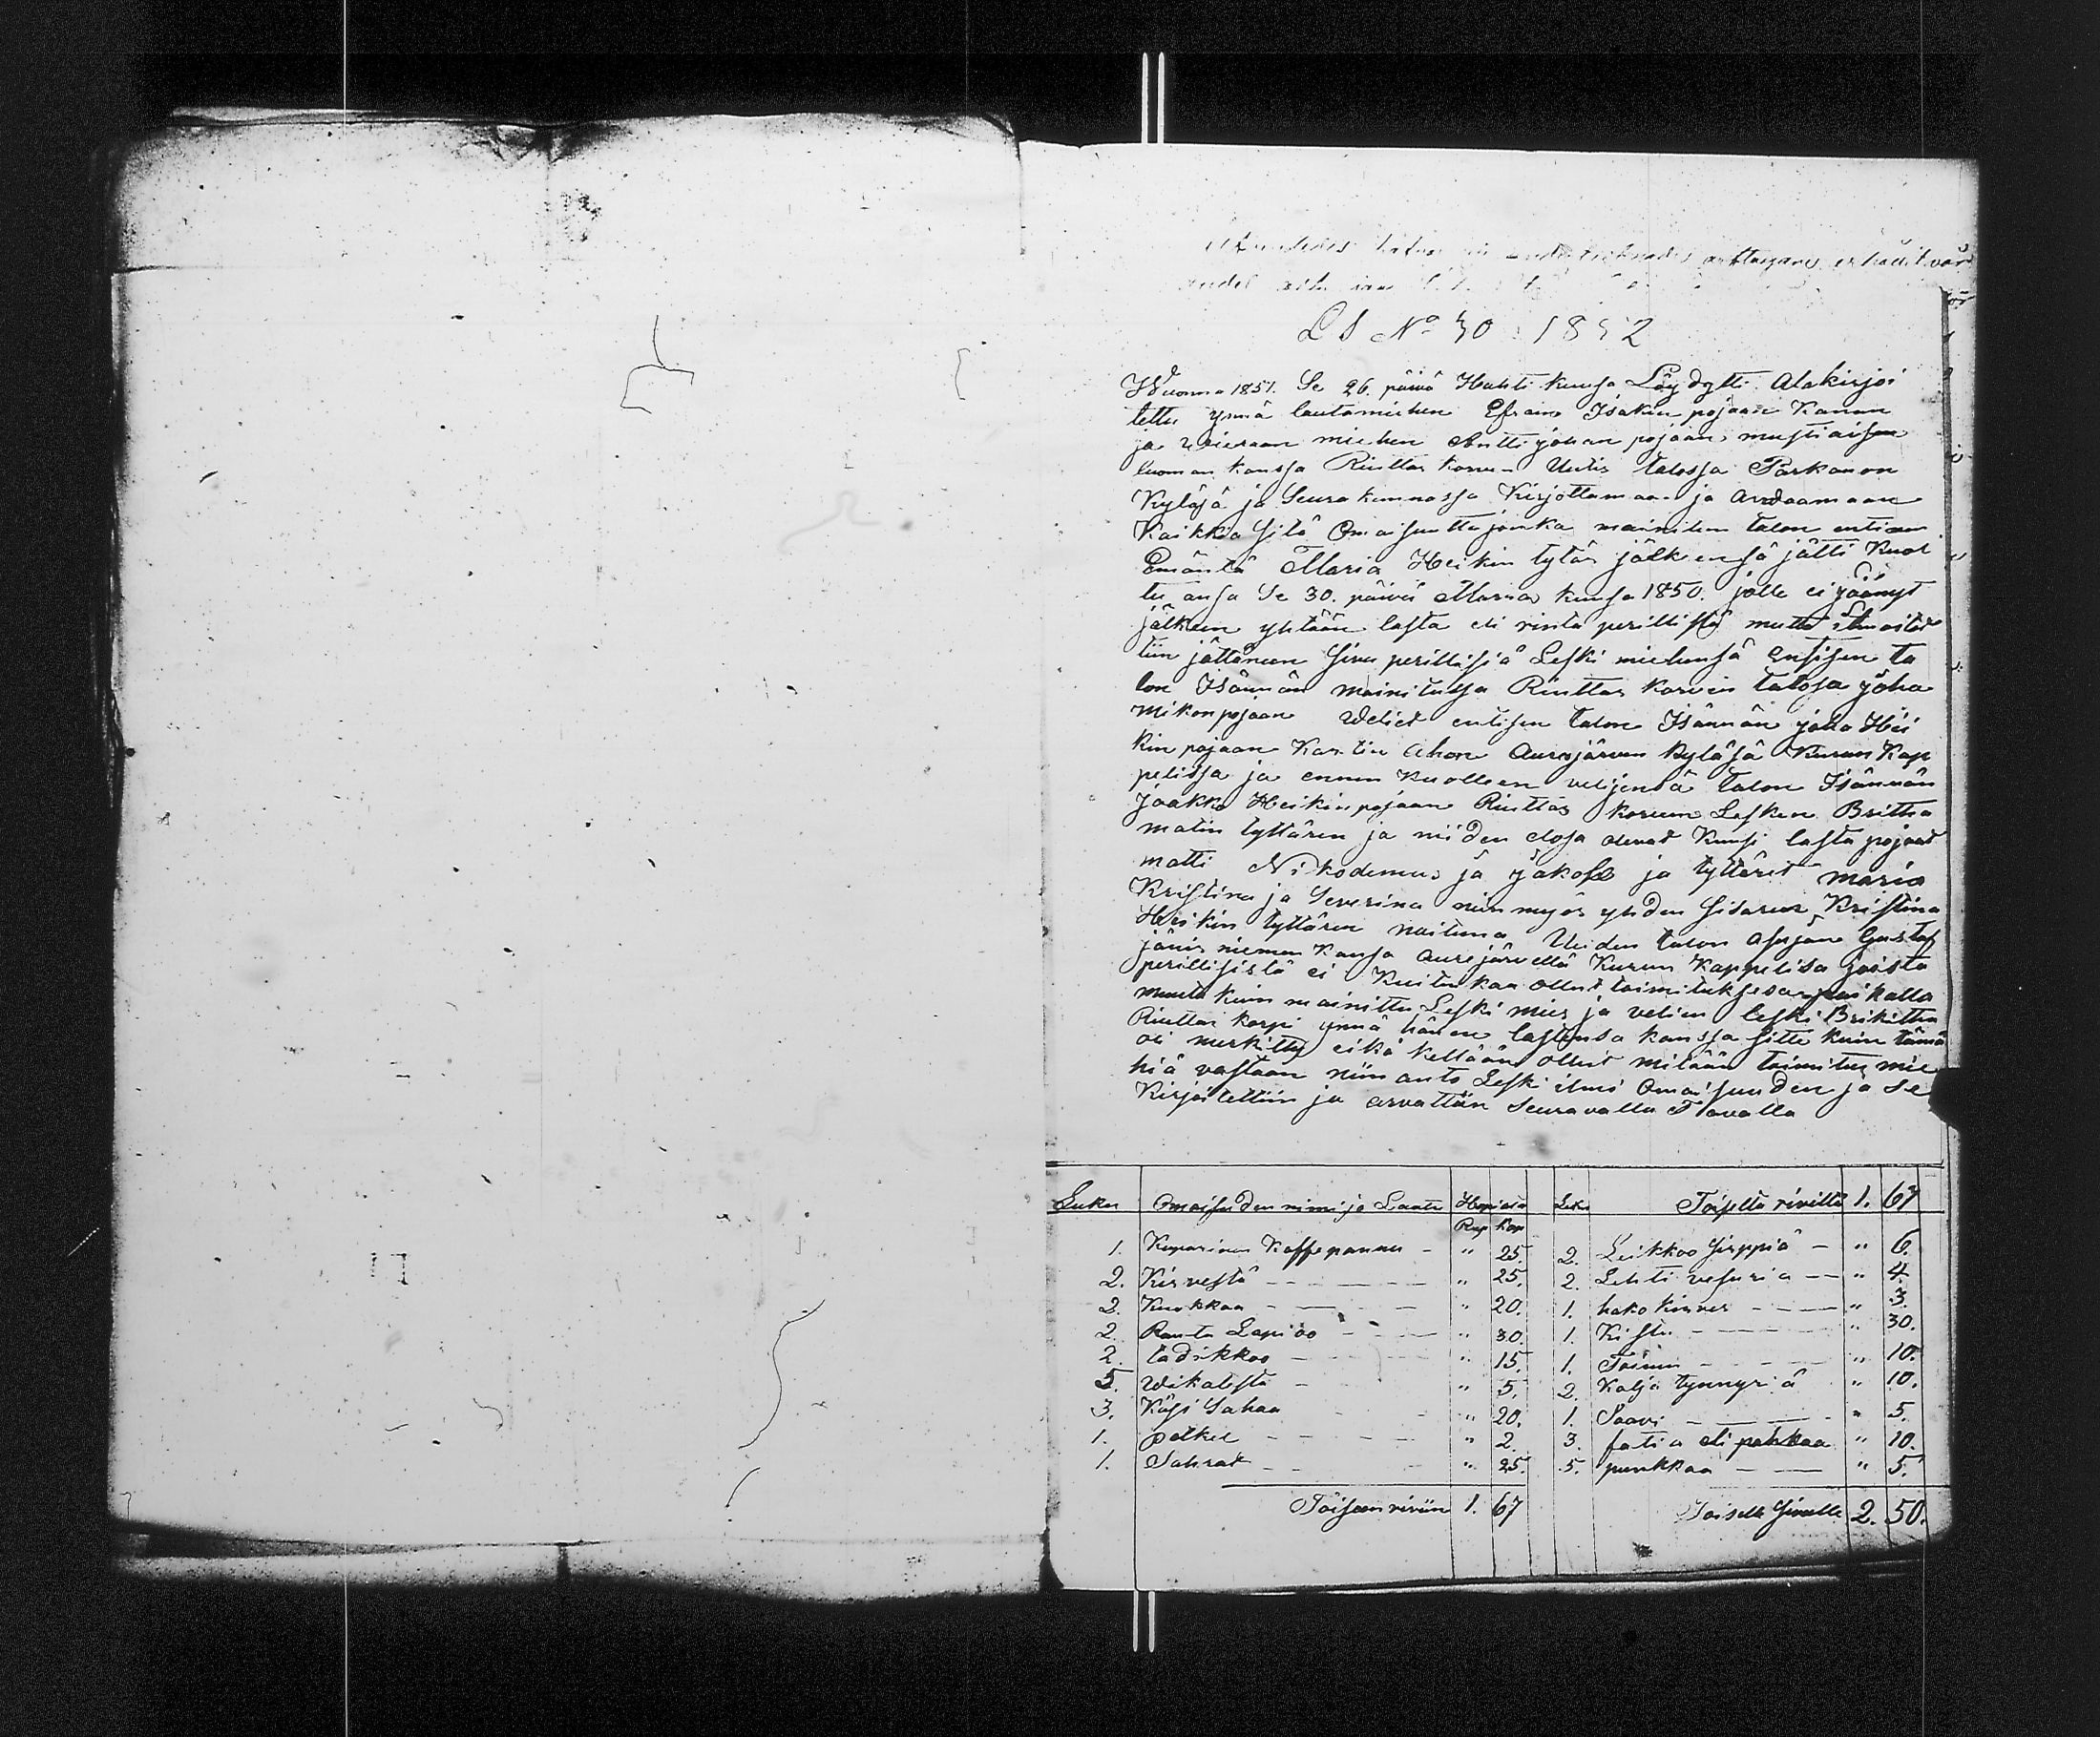 erhållit vår
L S No 30 1852
Wuonna 1851. Se 26. päivä Huhti kuusa Löydytti Alakirjoi
tettu ynnä lautamiehen Efraim Isakin pojaan Kanan
ja Wieraan miehen Antti johan pojaan mustaisen
luoman kanssa Riuttas korve- Uutis talossa Parkanon
Kyläsä ja Seurakunnassa Kirjottamaan ja Arwaamaan
Kaikkia Sitä Omasuutta joinka mainitun talon entinen
Emäntä Maria Heikin tytär jälkensä jätti Kuol
tu ansa Se 30. päivä Marras kuusa 1850. jolle ei jäänyt
jälkeen yhtään lasta eli rinta perillistä mutta ilmoitet
tiin jättäneen Sivu perillisiä Leski miehensä entisen ta
lon Isännän mainitussa Riuttas korven talosa joha
Mikonpojaan Weliet entisen talon Isännän joha Hei
kin pojaan Kantin ahon Aurejärven kyläsä Kurun Kap
pelissa ja ennen kuolleen veljensä talon Isännän
Jaakko Heikinpojaan Riuttas korven Lesken Britha
matin tyttären ja niiden elosa olevat Kuusi lasta pojaat
matti Nikodemus ja Jakob ja tyttäret maria
Kristina ja Severina niin myös yhden Sisaren Kristina
Heikin tyttären naituna Uuden talon Asujan Gustaf
jänis niemen kansa Aurejärvellä Kurun Kappelisa joista
perillisistä ei Kuitenkaa ollut toimituksesa paikalla
muuta kuin mainittu Leski mies ja velien leski Brikitha
Riuttas korpi ynnä hänen lastensa kanssa Sitte kuin tämä
oli merkitty eikä kellään ollut mitään toimitus mie
hiä vastaan niin anto Leski ilmi Omaisuuden ja se
Kirjoitettiin ja arvattiin Seuravalla Tavalla
Luku Omaisuden nimi ja Laatu Hopiasa Luku Toiselta riviltä 1. 67
Rup Kop
1. Kuparinen Kaffepannu - " 25. 2. Leikkoo Sirppiä - " 6.
2. Kirvestä - " 25. 2. Lehti vesuria - " 4.
2. Kuokkaa - " 20. 1. hako kirves - " 3.
2. Rauta Lapioo - " 30. 1. Kistu - " 30.
2. tadikkoo - " 15. 1. Toinen - " 10.
5. Wikatesta - " 5. 2. Kalja tynnyriä " 10.
3. Käsi Sahaa - " 20. 1. Saavi - " 5.
1. petkel - " 2. 3. fatia eli patkaa " 10.
1. Sahrat - " 25. 5. punkkaa - " 5.
Toiseen riviin 1. 67 Toiselle Sivulle 2. 50.